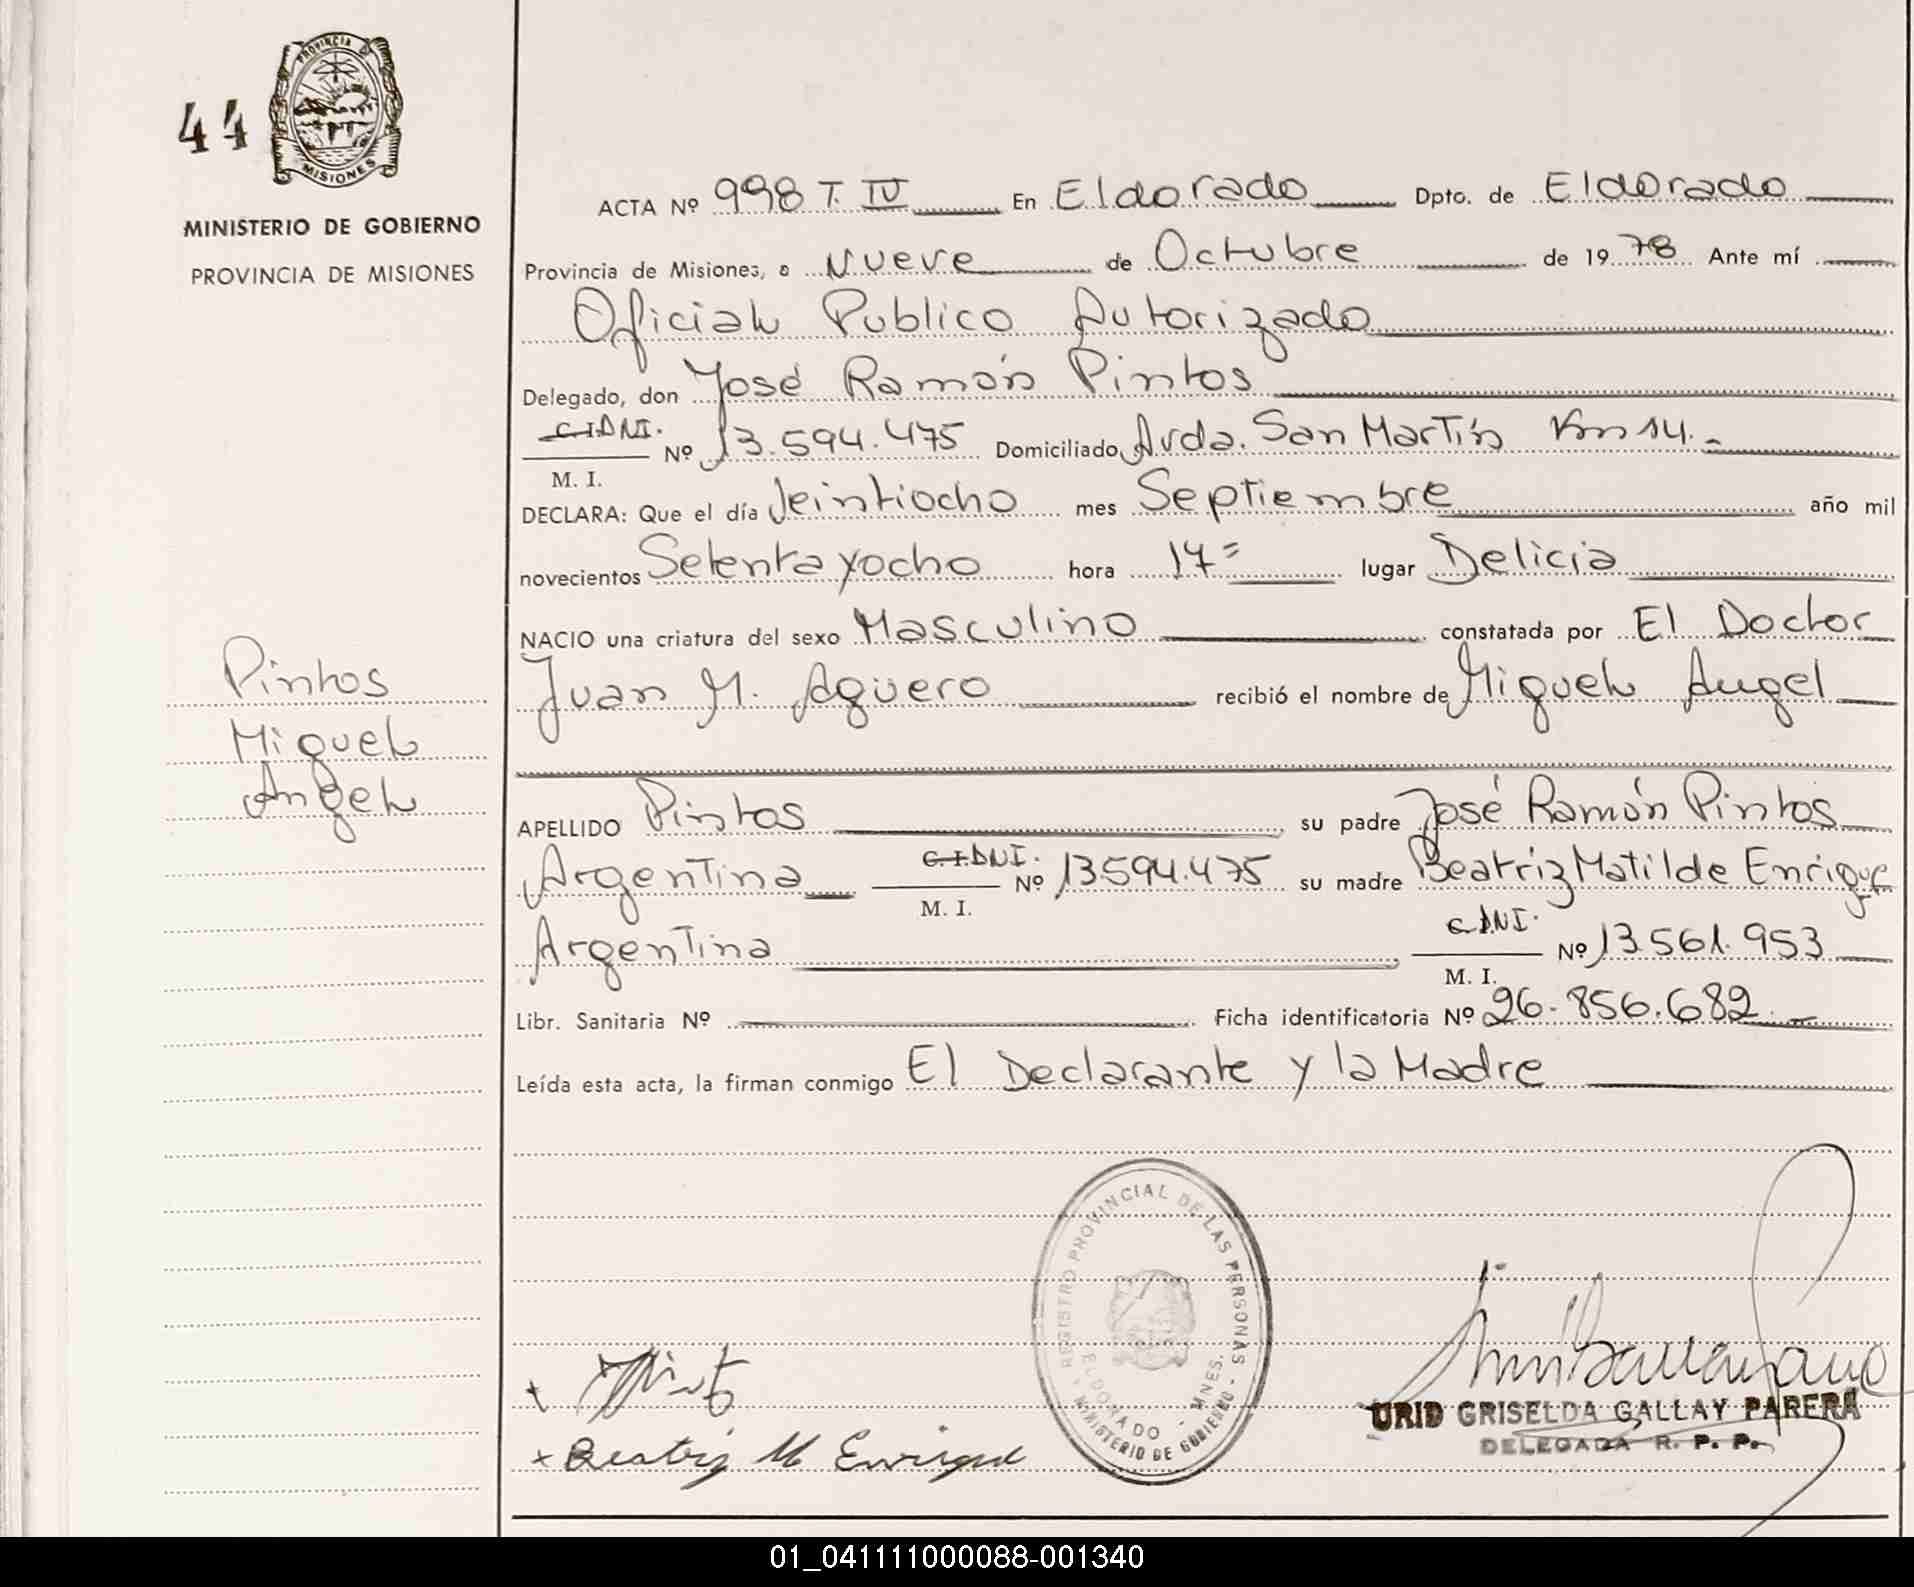 44
PROVINCIA DE
MISIONES
MINISTERIO DE GOBIERNO
PROVINCIA DE MISIONES
Pintos
Miguel
Angel
ACTA Nº 998 T. IV En Eldorado Dpto. de Eldorado
Provincia de Misiones, a nueve de Octubre de 1978 Ante mí
Oficial Publico Autorizado
Delegado, don José Ramón Pintos
C.I DNI.
M. I. Nº 13.594.475 Domiciliado Avda. San Martín Km 14.-
DECLARA: Que el día Veintiocho mes Septiembre año mil
novecientos Setenta y ocho hora 17= lugar Delicia
NACIO una criatura del sexo Masculino constatada por El Doctor
Juan M. Agüero recibió el nombre de Miguel Angel
APELLIDO Pintos su padre José Ramón Pintos
Argentina C.I.DNI. Nº 13594.475 su madre Beatriz Matilde Enrique
M. I.
Argentina C.DNI. Nº 13.561.953
M. I.
Libr. Sanitaria Nº Ficha identificatoria Nº 26.856.682.-
Leída esta acta, la firman conmigo El Declarante y la Madre
REGISTRO PROVINCIAL DE LAS PERSONAS
ELDORADO - MNES.
MINISTERIO DE GOBIERNO
x Beatriz M Enrique
URID GRISELDA GALLAY PARERA
DELEGADA R. P. P.
01_041111000088-001340